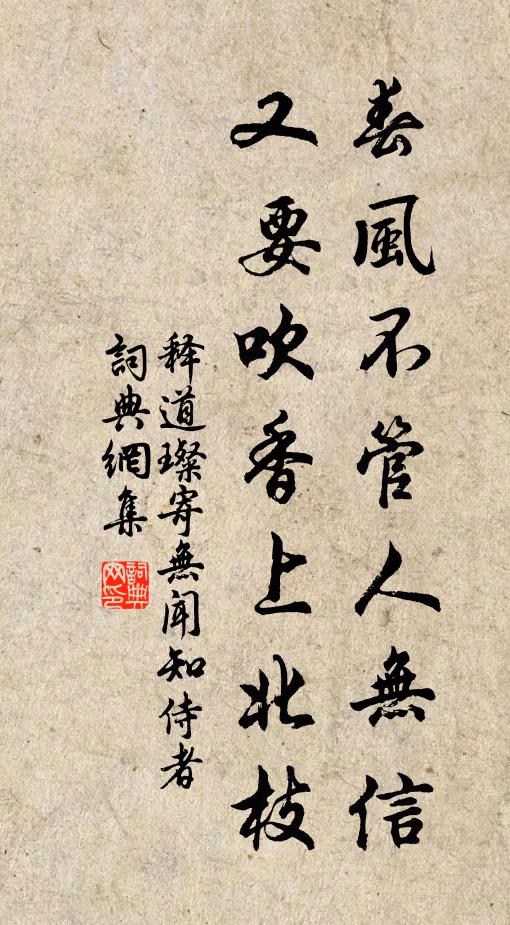 春風不管人無信
又要吹香上北枝
释道璨寄無聞知侍者
詞典網集
詞典網印